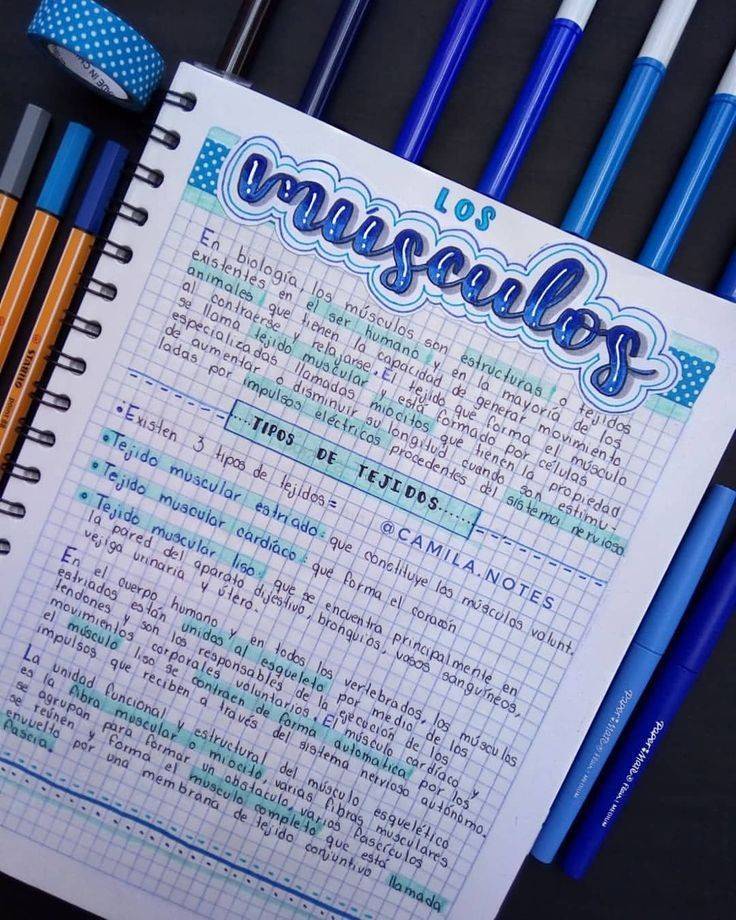 LOS
músculos
En biología los músculos son estructuras o tejidos
existentes en el ser humano y en la mayoría de los
animales que tienen la capacidad de generar movimiento
al contraerse y relajarse. El tejido que forma el músculo
se llama tejido muscular y está formado por células
especializadas llamadas miocitos que tienen la propiedad
de aumentar o disminuir su longitud cuando son estimu-
ladas por impulsos eléctricos procedentes del sistema nervioso
...TIPOS DE TEJIDOS......
•Existen 3 tipos de tejidos=
@CAMILA.NOTES
•Tejido muscular estriado: que constituye los músculos volunt.
•Tejido muscular cardíaco: que forma el corazón
•Tejido muscular liso: que se encuentra principalmente en
la pared del aparato digestivo, bronquios, vasos sanguíneos,
vejiga urinaria y útero.
En el cuerpo humano y en todos los vertebrados, los músculos
estriados están unidos al esqueleto por medio de los
tendones y son los responsables de la ejecución de los
movimientos corporales voluntarios. El músculo cardíaco y
el músculo liso se contraen de forma automática por los
impulsos que reciben a través del sistema nervioso autónomo.
La unidad funcional y estructural del músculo esquelético
es la fibra muscular o miocito, varias fibras musculares
se agrupan para formar un obstáculo, varios fascículos
se reúnen y forma el musculo completo que está
envuelto por una membrana de tejido conjuntivo llamada
fascia.
MADE IN
STABILO
point 88
Paper Mate® Flair! MEDIUM
Paper Mate® Flair! MEDIUM